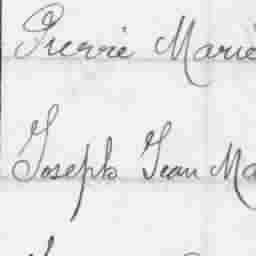 Pierre Marie
Joseph Jean Ma